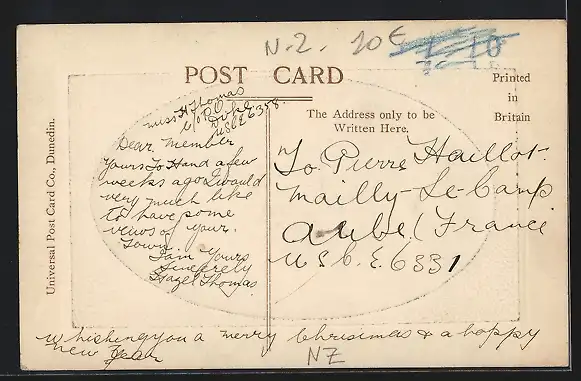 N-Z. 20€ 1-10
POST CARD
Printed
in
Britain
The Address only to be
Written Here.
Universal Post Card Co., Dunedin.
Miss H Thomas
c/o P.O.
USCE 6358.
Dear Member
Yours To Hand a few
weeks ago I would
very much like
to have some
views of your.
Town.
I am Yours
Sincerely
Hazel Thomas.
To Pierre Haillot.
Mailly-Le-Camp
Aube. (France
U S C. E. 6331
Whishing you a merry Christmas & a happy
New Year
NZ